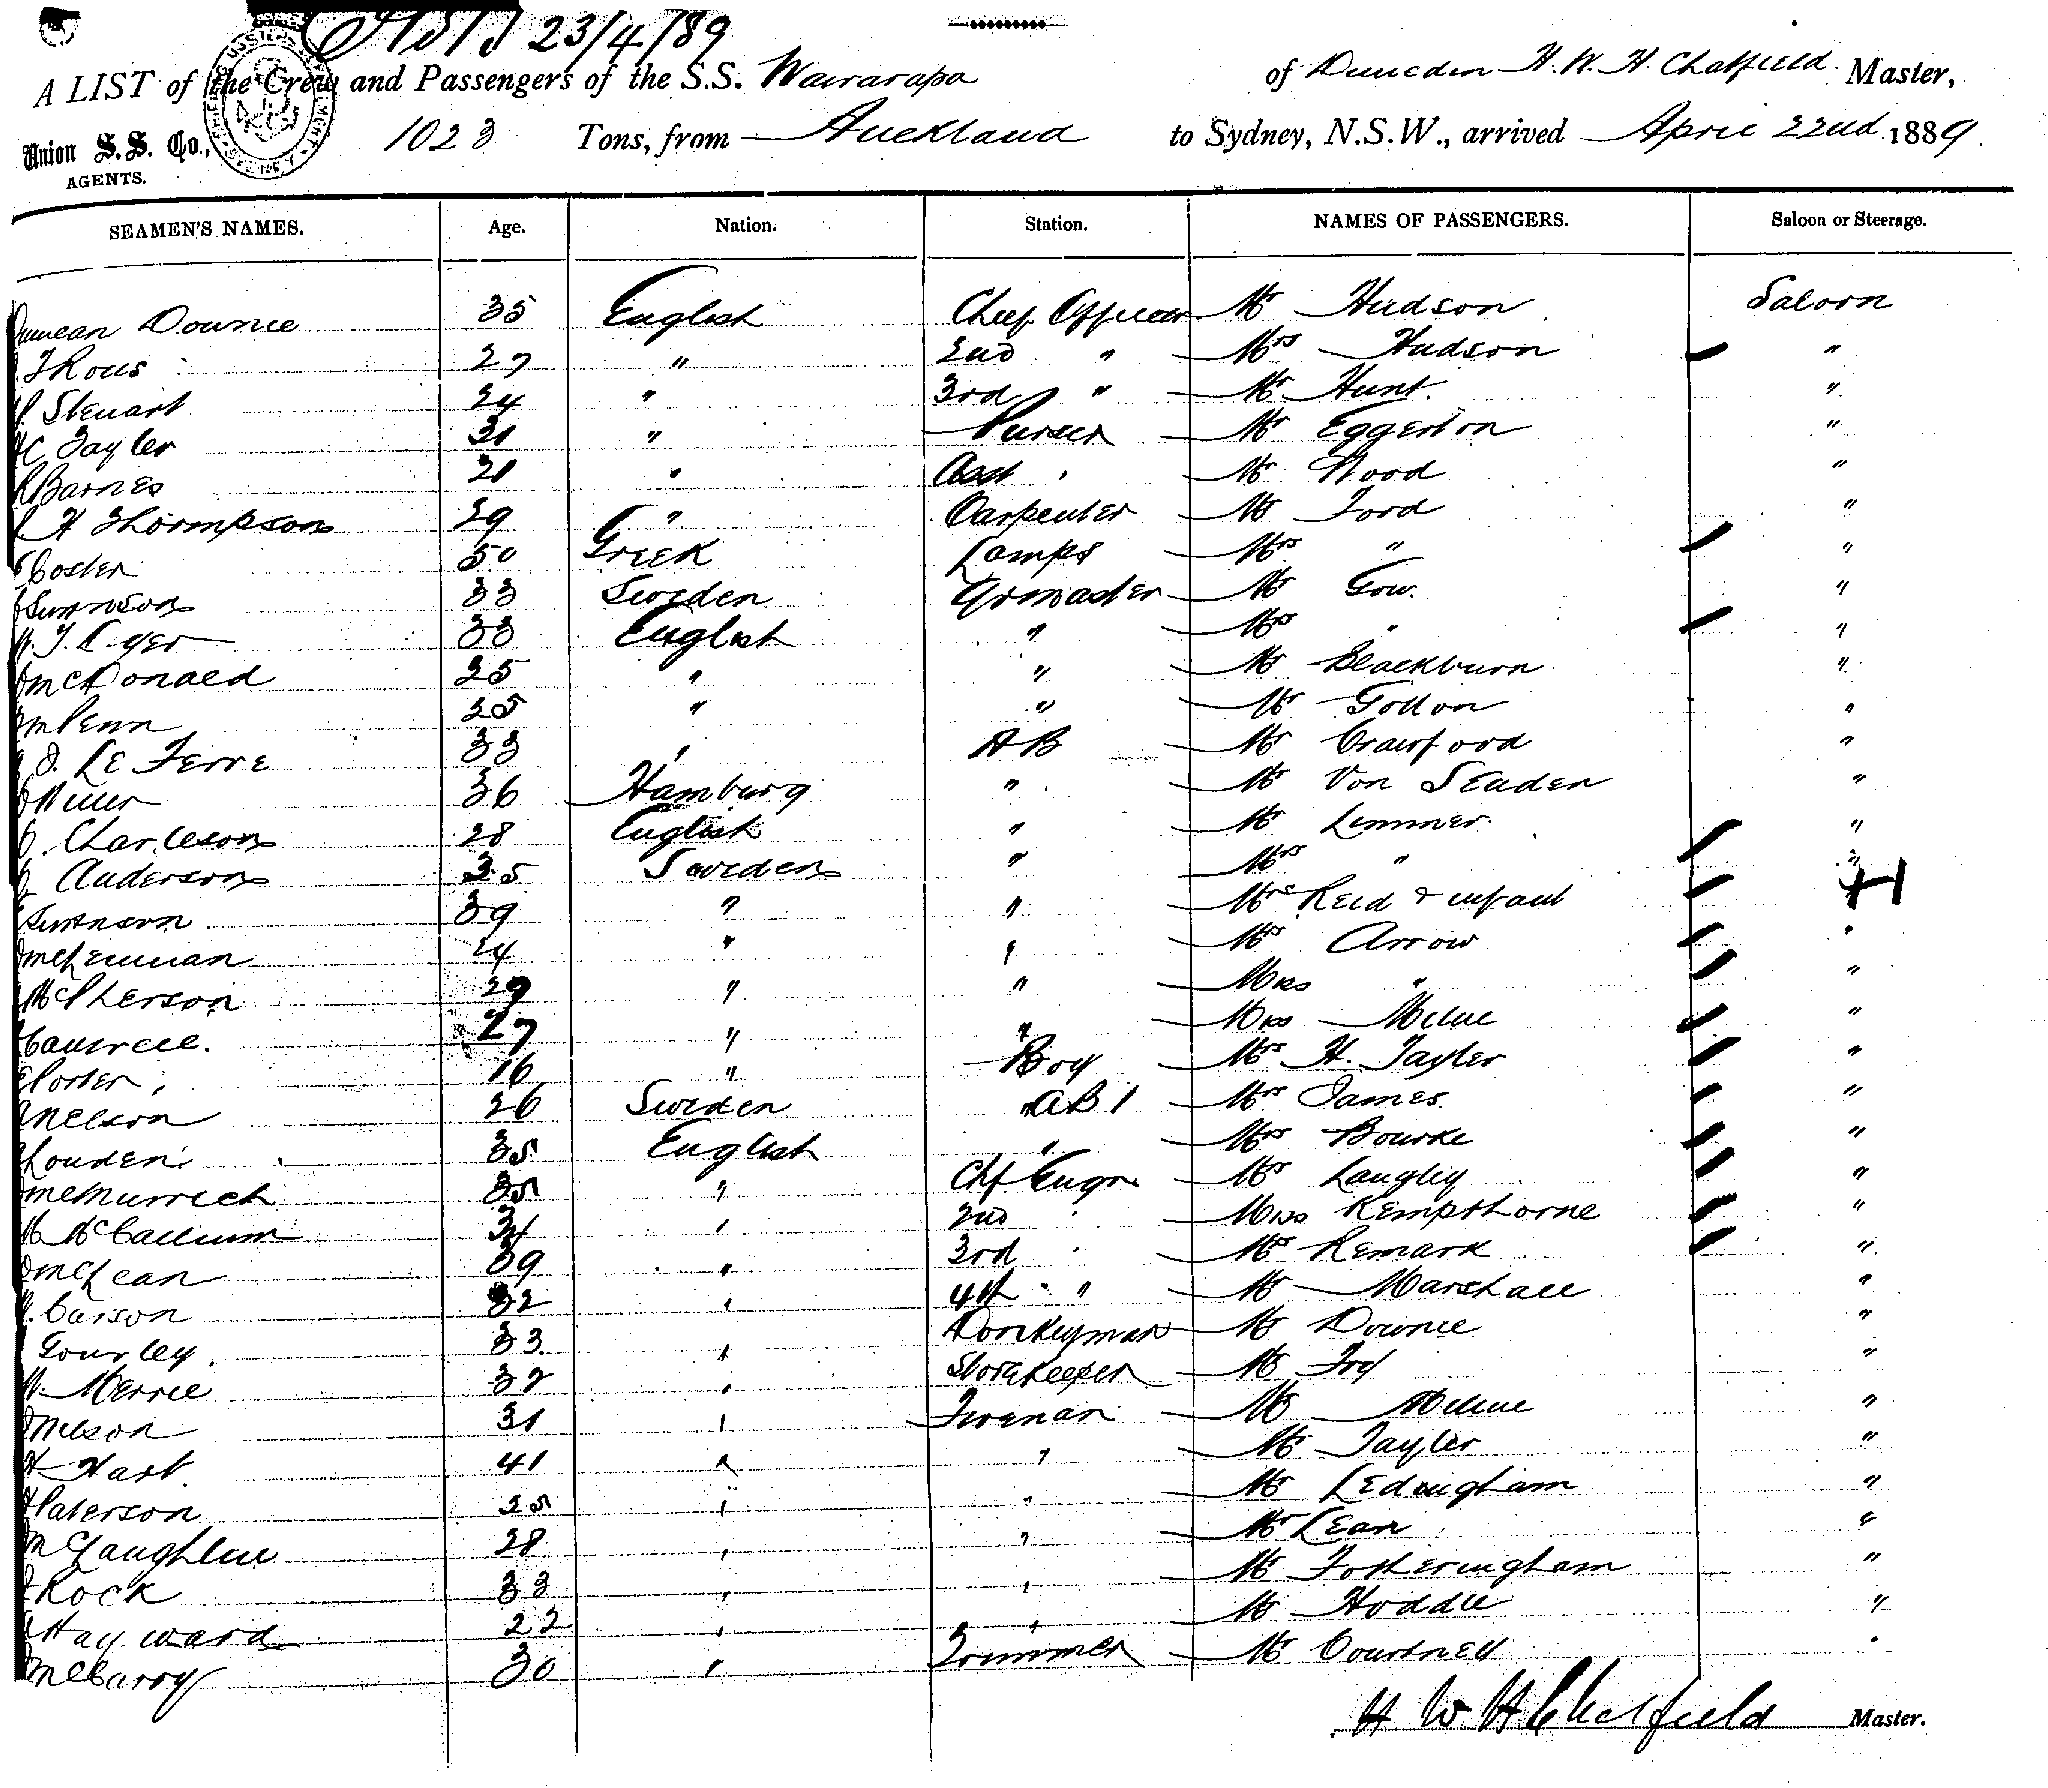 23/4/89
A LIST of the Crew and Passengers of the S.S. Wairarapa of Dunedin H. W. H. Chatfield Master,
Union S.S. Co., AGENTS. 1023 Tons, from Auckland to Sydney, N.S.W., arrived April 22nd 1889.
SEAMEN'S NAMES. Age. Nation. Station. NAMES OF PASSENGERS. Saloon or Steerage.
Duncan Downie 35 English Chief Officer Mr Hudson Saloon
27 " 2nd " Mrs Hudson "
Stewart 24 " 3rd " Mr Hunt. "
Tayler 31 " Purser Mr Eggerton "
Barnes 21 " Asst Mr Wood "
H Thompson 29 " Carpenter Mr Ford "
Coster 50 Greek Lamps Mrs " "
33 Sweden Qrmaster Mr Gow. "
33 English " Mrs " "
McDonald 25 " " Mr Blackburn "
Penn 25 " " Mr "
Le Ferre 33 " AB Mr Crawford "
36 Hamburg " Mr Von "
Charleson 28 English " Mr "
Anderson 35 Sweden " Mrs " "
Swanson 39 " " Mrs Reid & infant
McLennan 24 " " Mrs Arrow "
McPherson 29 " " Miss " "
27 " " Miss Milne "
Porter 16 " Boy Mrs H. Tayler "
Nelson 26 Sweden AB 1 Mrs James. "
Louden 35 English " Mrs Bourke "
McMurrich 35 " Chf Engr Mrs Langley "
McCallum 34 " 2nd " Miss Kempthorne "
McLean 39 " 3rd " Mrs Remark "
Carson 32 " 4th " Mr Marshall "
Gourley 33 " Donkeyman Mr Downie "
Merrie 32 " Storekeeper Mr "
Nelson 31 " Fireman Mr Milne "
Hart 41 " " Mr Tayler "
Paterson 25 " " Mr Ledingham "
McLaughlin 28 " " Mr Lean "
Rock 33 " " Mr Fotheringham "
Hayward 22 " " Mr Hoddie "
McGarry 30 " Trimmer Mr Courtney "
H W H Chatfield Master.